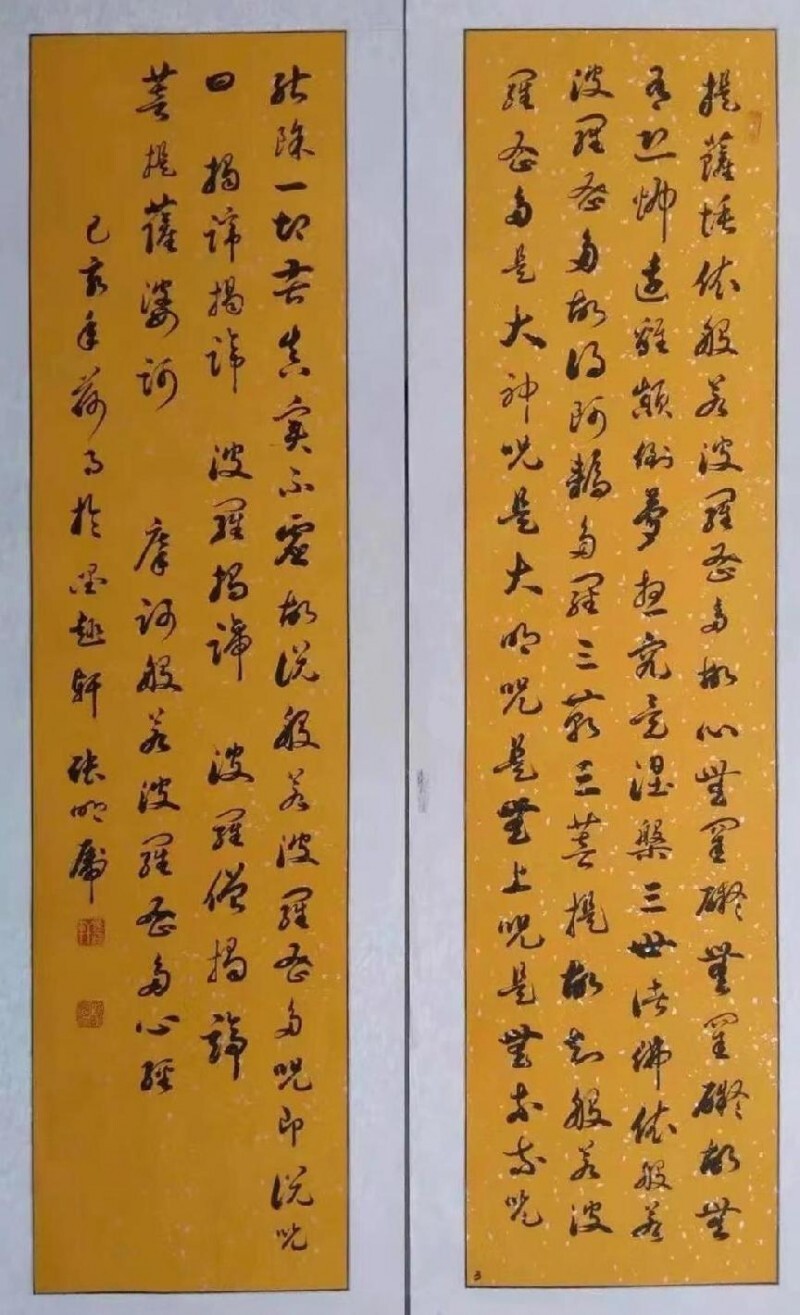 提薩埵依般若波羅蜜多故心無罣礙無罣礙故無
有恐怖遠離顛倒夢想究竟涅槃三世諸佛依般若
波羅蜜多故得阿耨多羅三藐三菩提故知般若波
羅蜜多是大神呪是大明呪是無上呪是無等等呪
3
能除一切苦真實不虛故說般若波羅蜜多呪即說呪
曰 揭諦揭諦 波羅揭諦 波羅僧揭諦
菩提薩婆訶 摩訶般若波羅蜜多心經
己亥年荷月於墨趣軒 張明虎